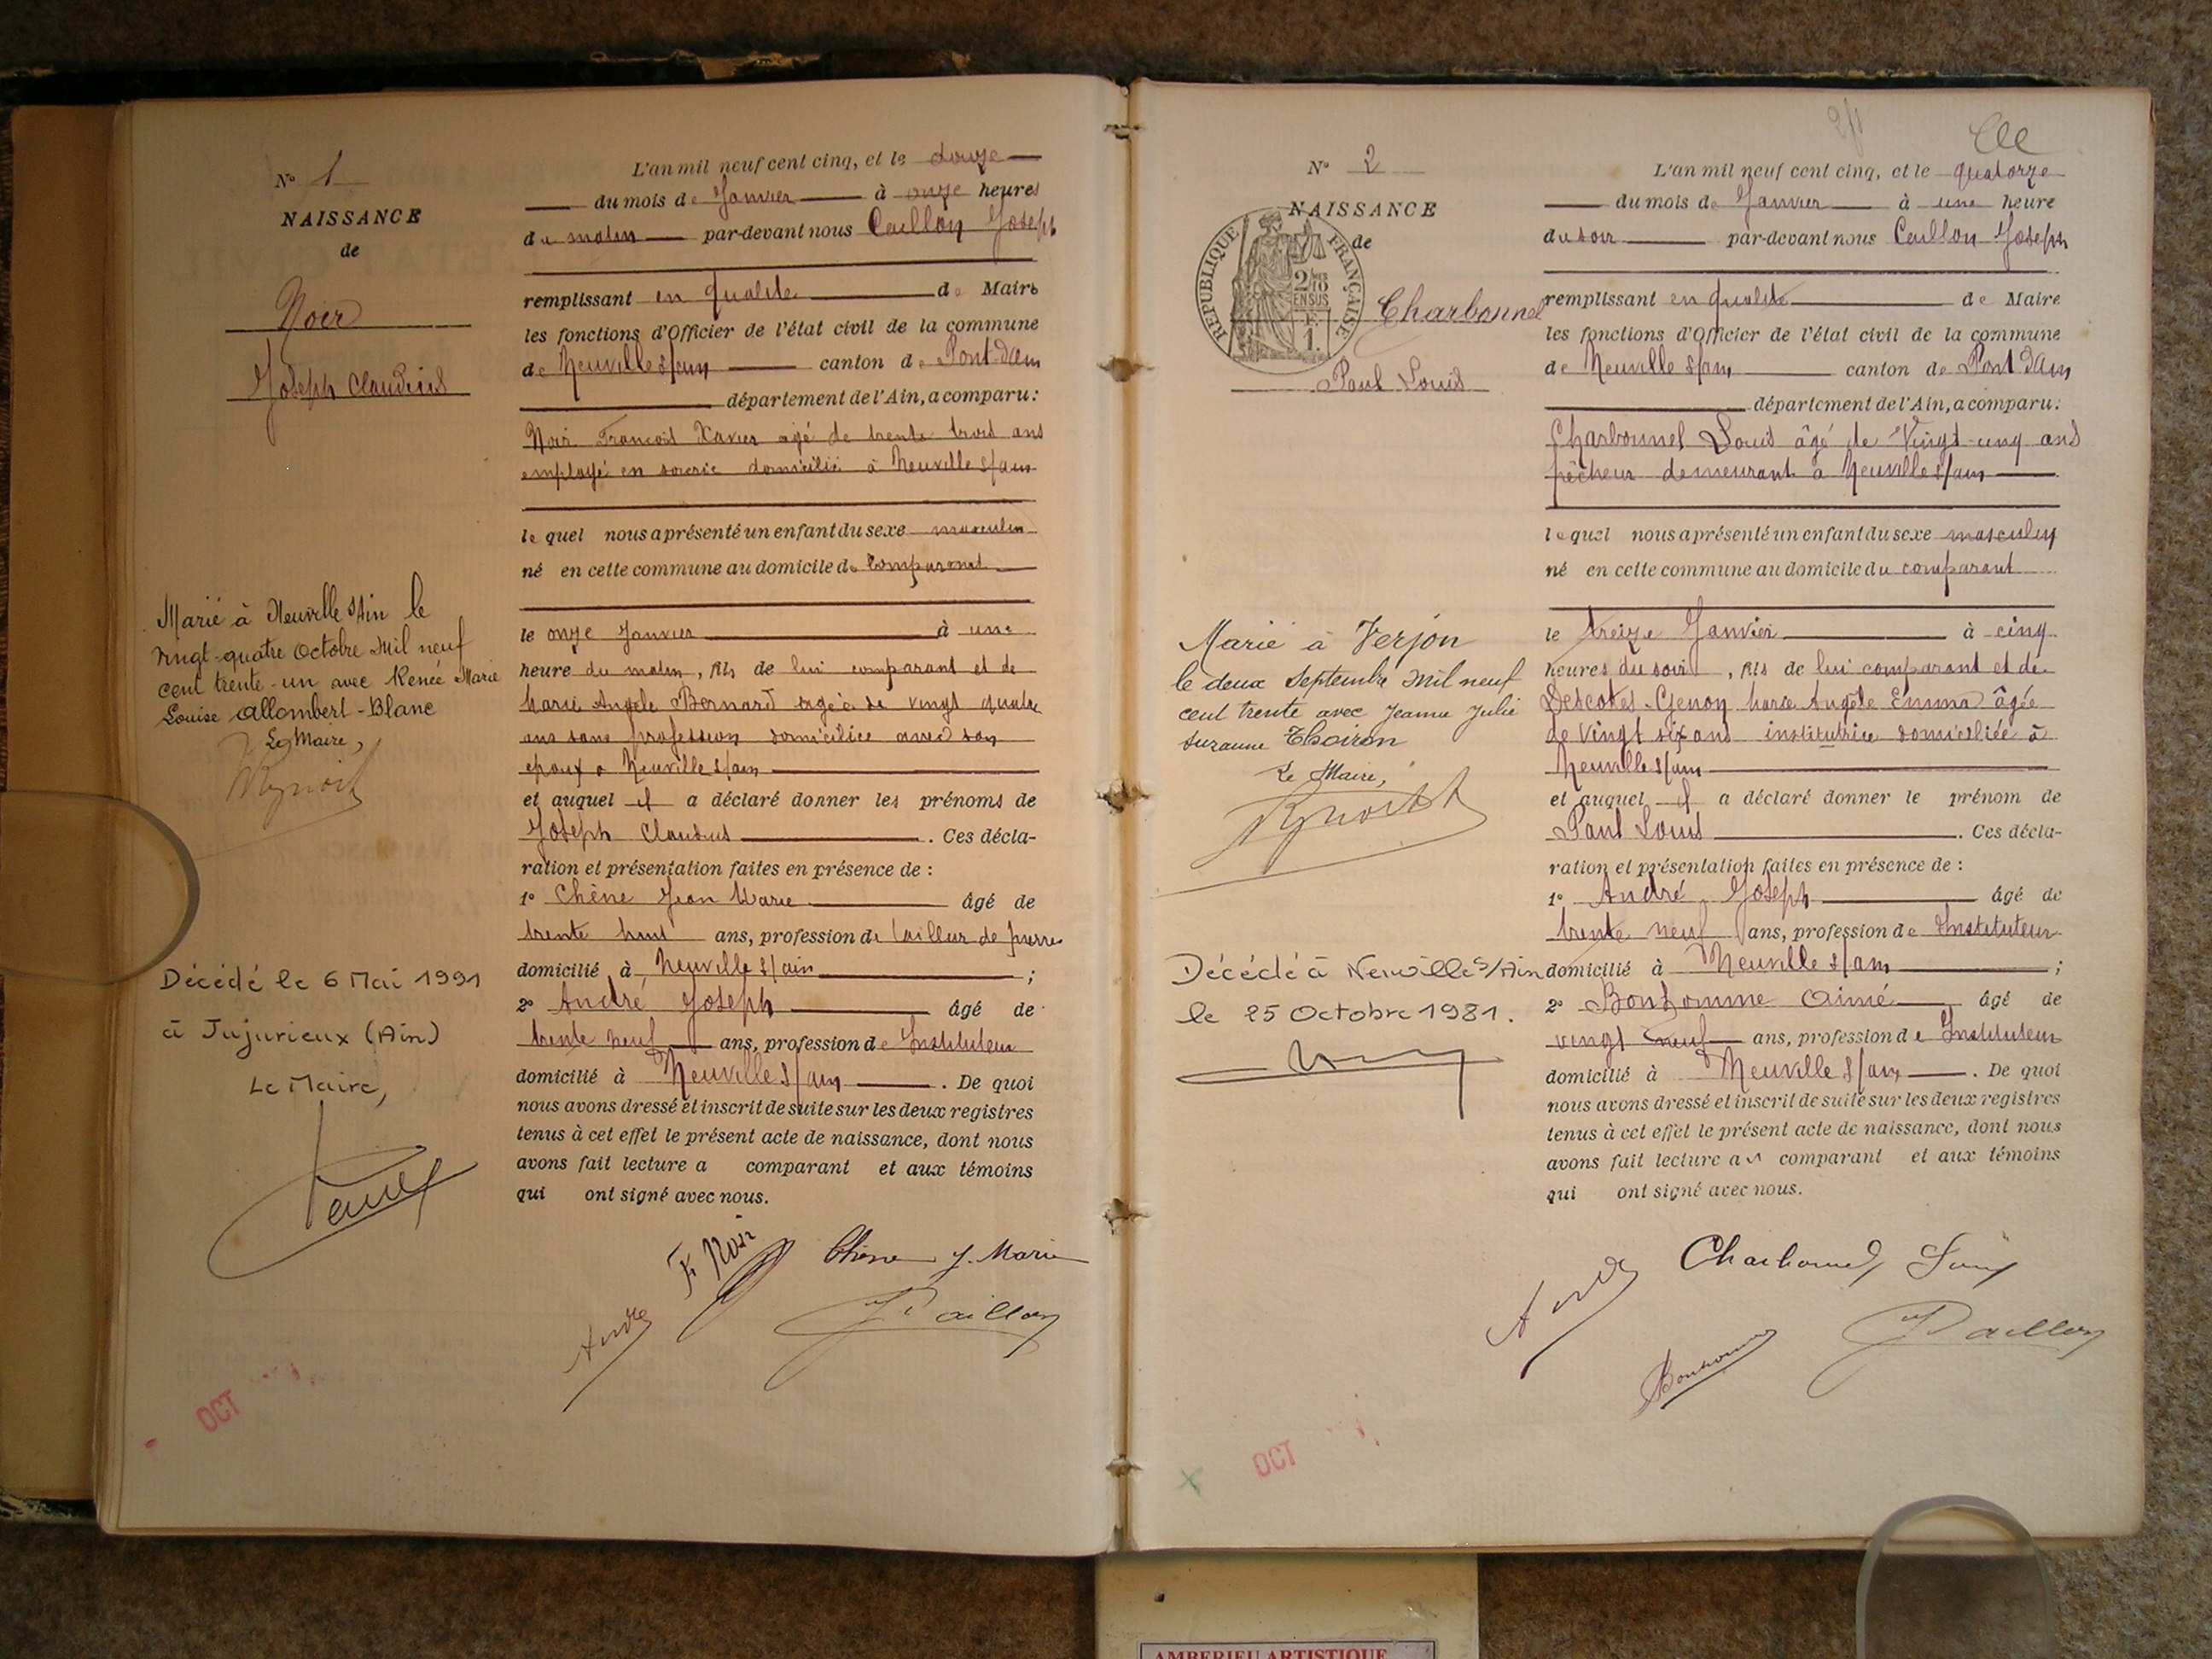 N° 1
NAISSANCE
de
Noir
Joseph Claudius
Marié à Neuville s/Ain le
vingt-quatre Octobre Mil neuf
cent trente-un avec Renée Marie
Louise Allombert-Blanc
Le Maire,
Décédé le 6 Mai 1991
à Jujurieux (Ain)
Le Maire,
OCT
L'an mil neuf cent cinq, et le douze
du mois de Janvier à onze heures
du matin par-devant nous Caillon Joseph
remplissant en qualité de Maire
les fonctions d'Officier de l'état civil de la commune
de Neuville s/ain canton de Pont d'ain
département de l'Ain, a comparu:
Noir François Xavier agé de trente trois ans
employé en soierie domicilié à Neuville s/ain
le quel nous a présenté un enfant du sexe masculin
né en cette commune au domicile du comparant
le onze Janvier à une
heure du matin, fils de lui comparant et de
Marie Angèle Bernard agée de vingt quatre
ans sans profession domiciliée avec son
epoux a Neuville s/ain
et auquel il a déclaré donner les prénoms de
Joseph Claudius. Ces décla-
ration et présentation faites en présence de :
1° Chêne Jean Marie âgé de
trente huit ans, profession de tailleur de pierres
domicilié à Neuville s/ain ;
2° André Joseph âgé de
trente neuf ans, profession de Instituteur
domicilié à Neuville s/ain. De quoi
nous avons dressé et inscrit de suite sur les deux registres
tenus à cet effet le présent acte de naissance, dont nous
avons fait lecture a comparant et aux témoins
qui ont signé avec nous.
F. Noir
Chêne J. Marie
André
J Caillon
N° 2
NAISSANCE
de
REPUBLIQUE FRANÇAISE
2/10 EN SUS
F. 1.
Charbonnel
Paul Louis
Marié à Verjon
le deux Septembre Mil neuf
cent trente avec Jeanne Julie
Suzanne Thoiron
Le Maire,
Décédé à Neuville s/Ain
le 25 Octobre 1981.
OCT
L'an mil neuf cent cinq, et le quatorze
du mois de Janvier à une heure
du soir par-devant nous Caillon Joseph
remplissant en qualité de Maire
les fonctions d'Officier de l'état civil de la commune
de Neuville s/ain canton de Pont d'ain
département de l'Ain, a comparu:
Charbonnel Louis âgé de Vingt-cinq ans
pêcheur demeurant à Neuville s/ain
le quel nous a présenté un enfant du sexe masculin
né en cette commune au domicile du comparant
le treize Janvier à cinq
heures du soir, fils de lui comparant et de
Descotes-Genon Marie Angèle Emma âgée
de vingt six ans institutrice domiciliée à
Neuville s/ain
et auquel il a déclaré donner le prénom de
Paul Louis. Ces décla-
ration et présentation faites en présence de :
1° André Joseph âgé de
trente neuf ans, profession de Instituteur
domicilié à Neuville s/ain ;
2° Bonhomme Aimé âgé de
vingt neuf ans, profession de Instituteur
domicilié à Neuville s/ain. De quoi
nous avons dressé et inscrit de suite sur les deux registres
tenus à cet effet le présent acte de naissance, dont nous
avons fait lecture au comparant et aux témoins
qui ont signé avec nous.
Charbonnel Louis
André
Bonhomme
J Caillon
AMBERIEU ARTISTIQUE